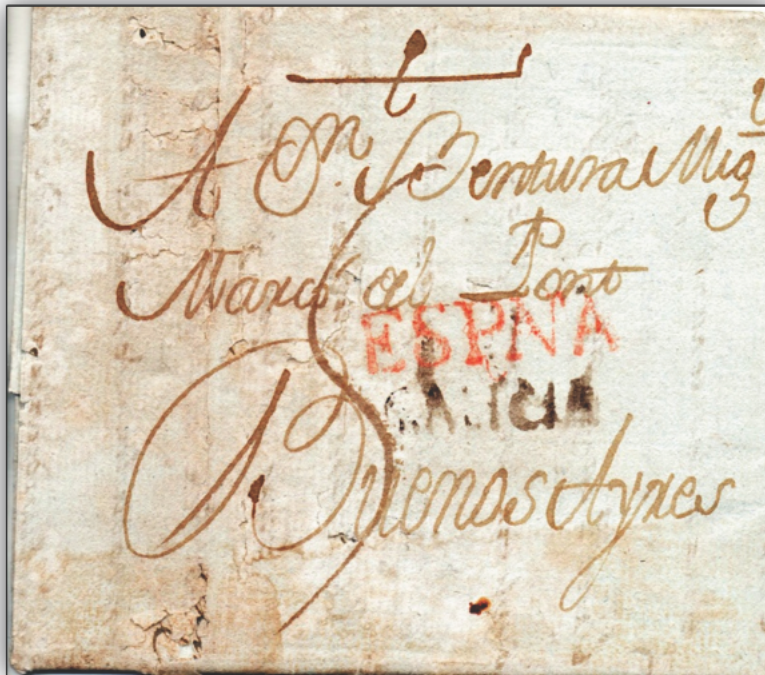 A Dn. Bentura Migl
Marco del Pont
ESPNA
GALICIA
Buenos Ayres